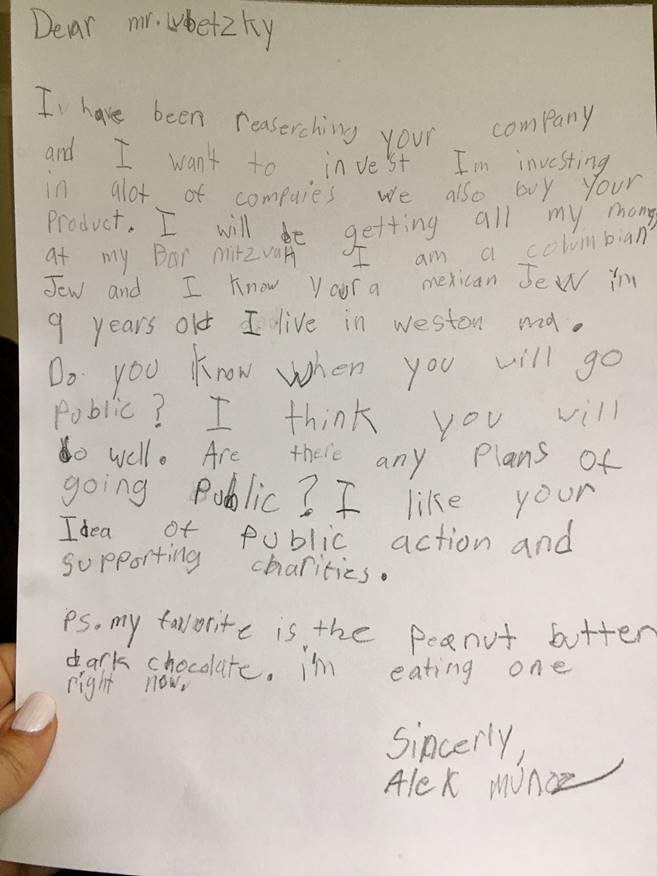 Dear mr. lubetzky
Iv have been reaserching your company
and I want to invest Im investing
in alot of compuies we also buy your
Product. I will be getting all my mony
at my Bar mitzvah I am a columbian
Jew and I know your a mexican Jew i'm
9 years old I live in weston ma.
Do you know when you will go
public? I think you will
do well. Are there any Plans of
going public? I like your
Idea of public action and
supporting charities.
Ps. my favorite is the Peanut butter
dark chocolate. i'm eating one
right now.
Sincerly,
Alek munoz